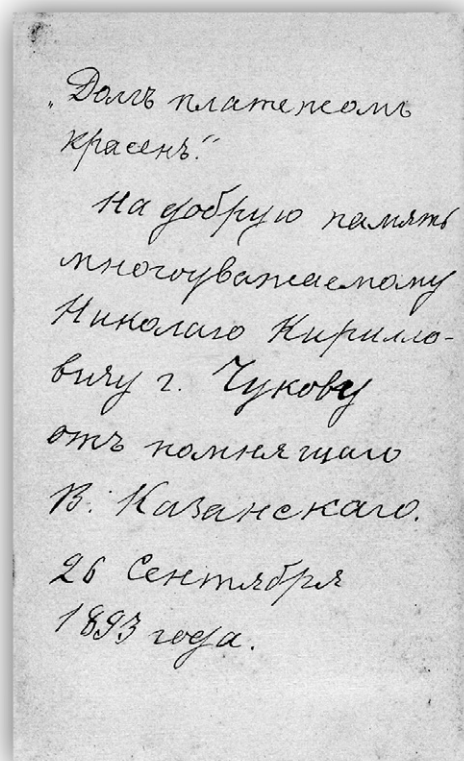 „Долгъ платежомъ
красенъ.“
На добрую память
многоуважаемому
Николаю Кирилло-
вичу г. Чукову
отъ помнящаго
В. Казанскаго.
26 Сентября
1893 года.